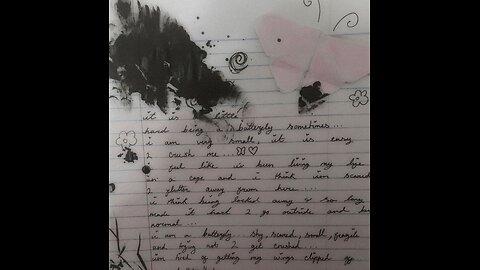 it is a little
hard being a butterfly sometimes...
i am very small, it is easy
2 crush me...
i feel like iv been living my life
in a cage and i think iim scared
2 flutter away from here...
i think being locked away 4 so long
made it hard 2 go outside and be
normal...
i am a butterfly... shy, scared, small, fragile
and trying not 2 get crushed...
iim tired of getting my wings clipped off